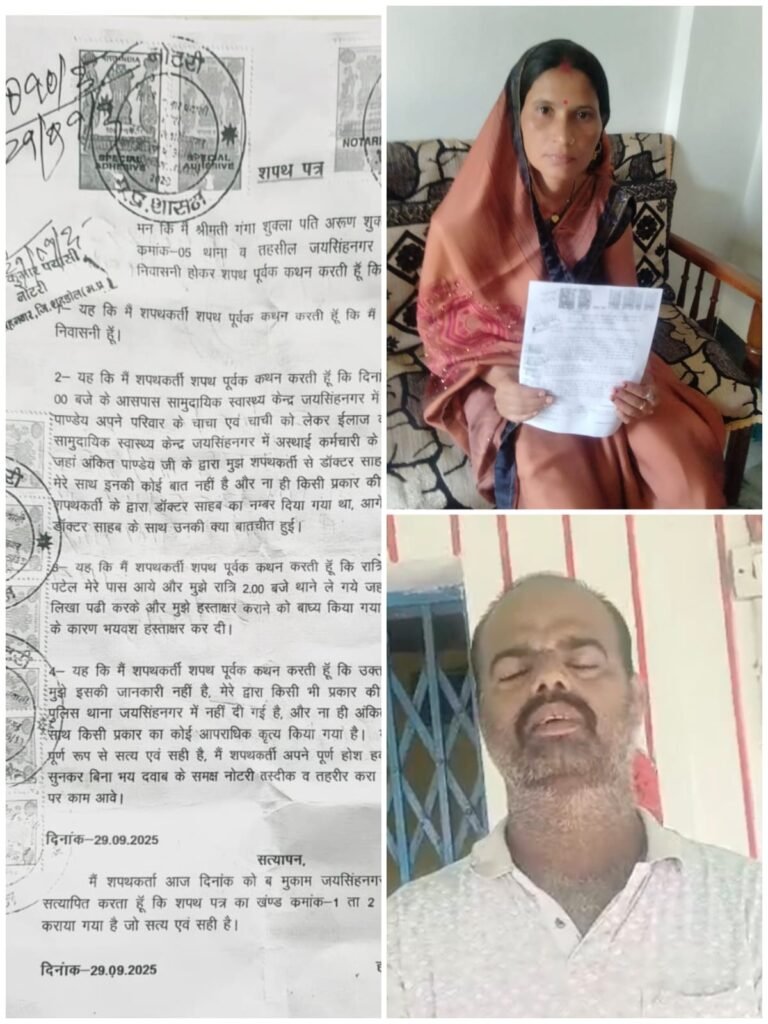 नोटरी
SPECIAL ADHESIVE
SPECIAL ADHESIVE
म.प्र.शासन
NOTARI
शपथ पत्र
भन कि मैं श्रीमती गंगा शुक्ला पति अरूण शुक
कमांक-05 थाना व तहसील जयसिंहनगर
निवासनी होकर शपथ पूर्वक कथन करती हूँ कि
नोटरी
यह कि मैं शपथकर्ती शपथ पूर्वक कथन करती हूँ कि मैं
निवासनी हूँ।
2– यह कि मैं शपथकर्ती शपथ पूर्वक कथन करती हूँ कि दिना
00 बजे के आसपास सामुदायिक स्वास्थ्य केन्द्र जयसिंहनगर में
पाण्डेय अपने परिवार के चाचा एवं चाची को लेकर ईलाज
सामुदायिक स्वास्थ्य केन्द्र जयसिंहनगर में अस्थाई कर्मचारी के
जहां अंकित पाण्डेय जी के द्वारा मुझ शपथकर्ती से डॉक्टर साह
मेरे साथ इनकी कोई बात नहीं है और ना ही किसी प्रकार की
शपथकर्ती के द्वारा डॉक्टर साहब का नम्बर दिया गया था, आगे
डॉक्टर साहब के साथ उनकी क्या बातचीत हुई।
3– यह कि मैं शपथकर्ती शपथ पूर्वक कथन करती हूँ कि रात्रि
पटेल मेरे पास आये और मुझे रात्रि 2.00 बजे थाने ले गये जह
लिखा पढी करके और मुझे हस्ताक्षर कराने को बाध्य किया गया
के कारण भयवश हस्ताक्षर कर दी।
4– यह कि मैं शपथकर्ती शपथ पूर्वक कथन करती हूँ कि उक्त
मुझे इसकी जानकारी नहीं है, मेरे द्वारा किसी भी प्रकार की
पुलिस थाना जयसिंहनगर में नहीं दी गई है, और ना ही अंकि
साथ किसी प्रकार का कोई आपराधिक कृत्य किया गया है।
पूर्ण रूप से सत्य एवं सही है, मैं शपथकर्ती अपने पूर्ण होश ह
सुनकर बिना भय दवाब के समक्ष नोटरी तस्दीक व तहरीर करा
पर काम आवे।
दिनांक–29.09.2025
सत्यापन,
मैं शपथकर्ता आज दिनांक को ब मुकाम जयसिंहनगर
सत्यापित करता हूँ कि शपथ पत्र का खंण्ड कमांक-1 ता 2
कराया गया है जो सत्य एवं सही है।
दिनांक–29.09.2025